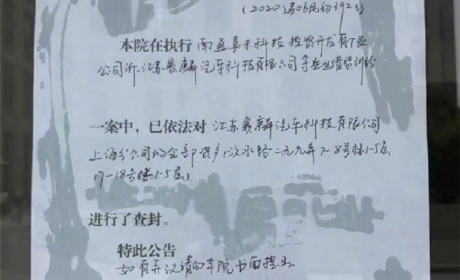 (2020)苏06执初392号
本院在执行 南通嘉禾科技投资开发有限
公司诉江苏赛麟汽车科技有限公司等
一案中,已依法对 江苏赛麟汽车科技有限公司
上海分公司的全部资产(汶水路二九九弄7-8号楼1-5层
17-18号楼1-5层)
进行了查封。
特此公告
如有异议请向本院书面提出